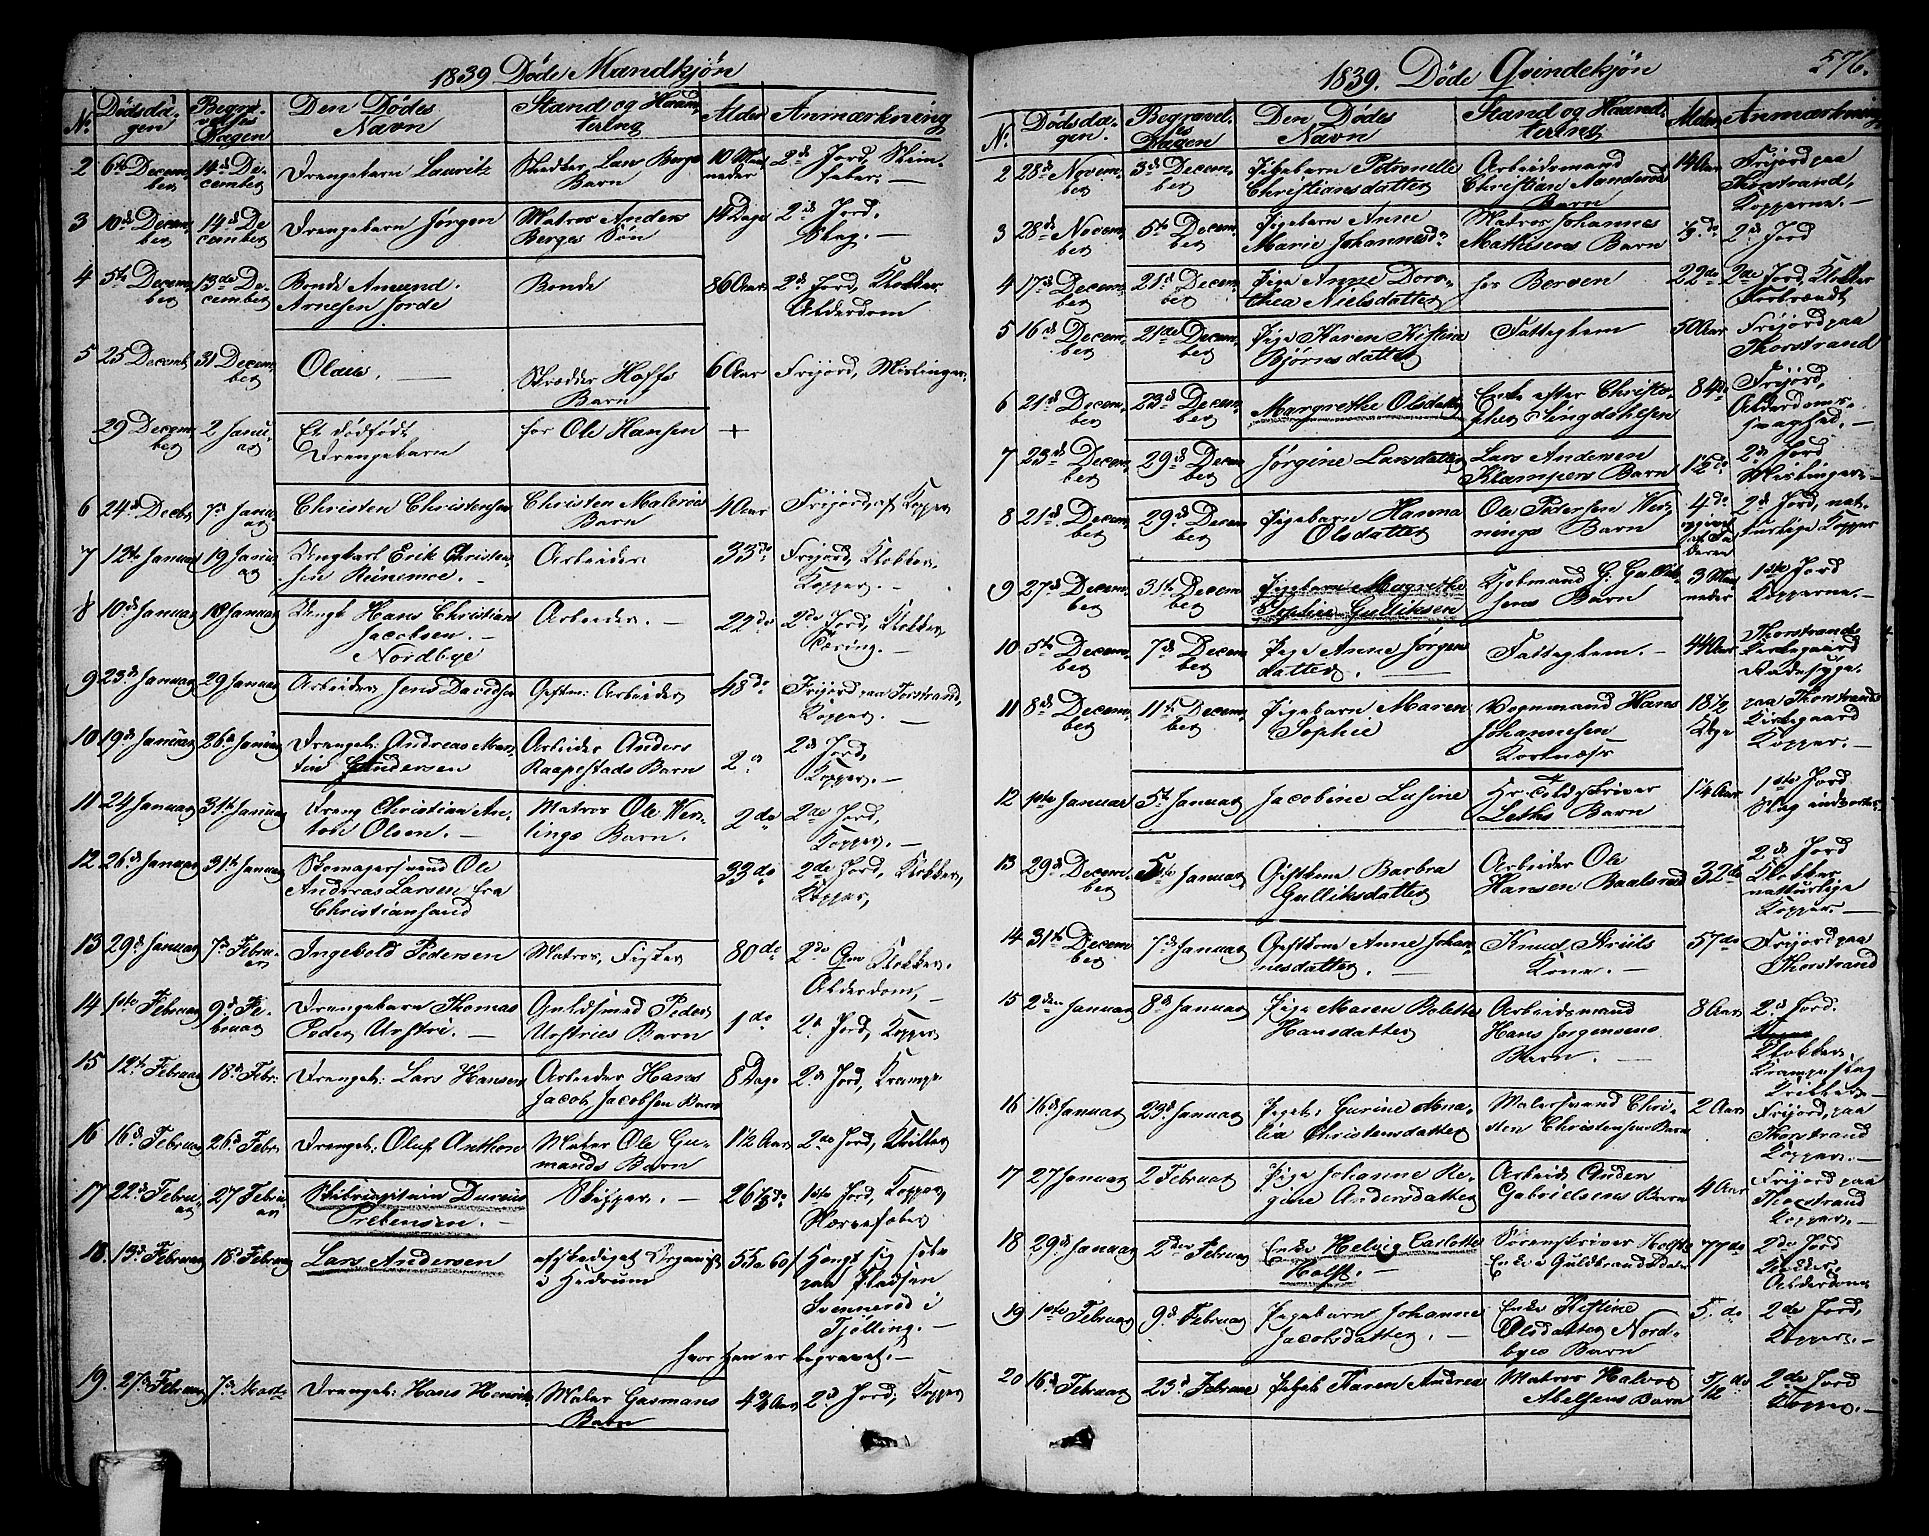 1839 Døde Mandkjön
No. Dødsda-
gen
Begra-
velses
Dagen
Den Dødes
Navn
Stand og Haand-
tering
Alder
Anmærkning
2 6te Decem-
ber
14d De-
cember
Drengebarn Lauritz
Barn
10 Maa-
neder
2d Jord,
3 10d Decem-
ber
14d De-
cember
Drengebarn Jørgen
Matros Anders
Berges Søn
14 Dage
2d Jord.
Slag. —
4 5te Decem-
ber
13de De-
cember
Bonde Amund
Arnesen Jorde
Bonde
86 Aar
2d Jord, Klokker
Alderdom
5 25 Decemb
31 Decem-
ber
Olaus. —
Skrædder Hoffs
Barn
6 Aar
Frijord, Mislinger.
29 Decem-
ber
2 Janu-
ar
Et dødfødt
Drengebarn
for Ole Hansen
+
6 24d Decbr
7d Janu-
ar
Christen Christensen
Christen Malerios
Barn
4 Aar
Frijord, af Kopper
7 12te Januar
19 Janu-
ar
Ungkarl Erik Christen-
sen
Arbeider
33 do
Frijord, Klokker.
Kopper. —
8 10d Januar
18 Januar
Ungk Hans Christian
Jacobsen. —
Nordbye
Arbeider. —
22 do
2de Jord, Klokker
Tæring. —
9 23d Januar
29 Januar
Arbeider Jens Davidsen
Giftm: Arbeider
48 do
Frijord paa Torstrand,
Kopper. —
10 19d Januar
26d Januar
Drengeb: Andreas Mar-
tin Andersen
Arbeider Anders
Raapestads Barn
2 "
2d Jord,
Kopper. —
11 24 Januar
31te Januar
Dreng Christian An-
ton Olsen. —
Matros Ole Wer-
lings Barn.
2 do
2de Jord,
Kopper. —
12 26d Januar
31te Januar
Skomagersvend Ole
Andreas Larsen fra
Christiansand
33 do
2de Jord, Klokker,
Kopper,
13 29d Januar
7d Febru-
ar
Ingebold Pedersen
Matros, Fisker
80 do
2de Klokker.
Alderdom, —
14 1ste Februar
9d Fe-
bruar
Drengebarn Thomas
Peder
Guldsmed Peder
Barn
1 do
2d Jord, Kopper
15 12te Februar
18d Febr.
Drengeb: Lars Hansen
Arbeider Hans
Jacob Jacobsen Barn
8 Dage
2d Jord, Krampe
16 16d Februar
26d Febr.
Drengeb: Oluf Anthon
Maler Ole Gu-
mands Barn
1 1/2 Aar
2de Jord,
17 22d Febru-
ar
27 Febru-
ar
Skibscapitain
Prebensen. —
Skipper. —
26 1/2 do
1ste Jord, Kopper,
Nervefeber
18. 13d Februar
18d Februar
Lars Andersen
afskediget Organist
i Hedrum
55 a 60
Hængt sig selv
paa Pladsen
Svennerød i
Tjølling. —
hvor han er begravet. —
19. 27d Februar
7d Marts
Drengeb: Hans Henrik
Maler Garmans
Barn
2d Jord, Kopper
1839. Døde Qvindekjön
576.
No.
Dødsda-
gen.
Begravel-
ses
Dagen
Den Dødes
Navn
Stand og Haand-
tering
Alder
Anmærkning
2 28d Novem-
ber
3d Decem-
ber
Pigebarn Petronelle
Christiansdatter
Arbeidsmand
Christian
Barn
14 Aar
Frijord paa
Thorstrand,
Kopperne. —
3 28d Novem-
ber
5te Decem-
ber
Pigebarn Anne
Marie Johannesdr
Matros Johannes
Mathisens Barn
2d Jord
4 17d Decem-
ber
21d Decem-
ber
Pige Anne Doro-
thea Nielsdatter
hos Berven
22 do
2de Jord, Klokker
Forbrændt
5 16d Decem-
ber
21de Decem-
ber
Pige Karen Kistine
Bjørnsdatter
Fattighem
50 Aar
Frijord paa
Thorstrand
6 21d Decem-
ber
23d Decem-
ber
Margrethe Olsdatter
Enke efter Christo-
pher Singdahlsen
84 do
Frijord,
Alderdoms-
svaghed. —
7 23d Decem-
ber
29d Decem-
ber
Jørgine Larsdatter
Lars Andersen
Klampers Barn
1 1/2 do
2d Jord
Mislinger. —
8 21d Decem-
ber
29d Decem-
ber
Pigebarn Hanna
Olsdatter
Ole Pedersen Wer-
nings Barn
4 do
opgivet
af Fa-
deren
2d Jord, nat-
turlige Kopper
9 27d Decem-
ber
31te Decem-
ber
Pigebarn Magrethe
Sophie Gulliksen
Kjøbmand G: Gullik-
sens Barn
3 Maa-
neder
1ste Jord
Kopperne. —
10 5te Decem-
ber
7d Decem-
ber
Pige Anne Jørgens-
datter. —
Fattighem. —
44 Aar
Thorstrands
Kirkegaard
Radesyge. —
11 8d Decem-
ber
11te Decem-
ber
Pigebarn Maren
Sophie
Vognmand Hans
Johannesen
18 1/2
Uge
paa Thorstrands
Kirkegaard
Kopper. —
12 1ste Januar
5te Januar
Jacobine Lusine
Hr Toldskriver
Leths Barn
1 1/4 Aar
1ste Jord
Slag
13 29d Decem-
ber
5te Januar
Giftkone Barbra
Gulliksdatter
Arbeider Ole
Hansen Baalsrød
32 do
2d Jord
Klokker
natturlige
Kopper. —
14 31te Decem-
ber
7d Januar
Giftkone Anne Johan-
nesdatter. —
Knud Struls
Kone. —
57 do
Frijord paa
Thorstrand
15 2den Januar
8d Januar
Pige Maren Bolette
Hansdatter
Arbeidsmand
Hans Jørgensens
Barn. —
8 Aar
2d Jord.
Klokker.
Krampeslag
16 16d Januar
23d Januar
Pigeb: Gurine Ama-
lia Christensdatter
Malersvend Chri-
sten Christensens Barn
2 Aar
Frijord, paa
Thorstrand
Kopper. —
17 27 Januar
2 Februar
Pige Johanne Re-
gine Andersdatter
Arbeid. Anders
Gabrielsens Barn
4 Aar
Frijord paa
Thorstrand
Kopper. —
18 29d Januar
2den Februar
Enke Helvig Carlotte
Holst. —
Sorenskriver Holsts
Enke i Guldbrandsdalen
77 do
2de Jord
Klokker.
Alderdom
19 1ste Februar
9d Februar
Pigebarn Johanne
Jacobsdatter. —
Enke Kistine
Olsdatter Nord-
byes Barn
5. do
2de Jord,
Kopper. —
20 16d Februar
23d Februar
Pigeb Karen Andrea
Matros Halvor
Abelsens Barn
5/12 do
2de Jord
Kopper. —